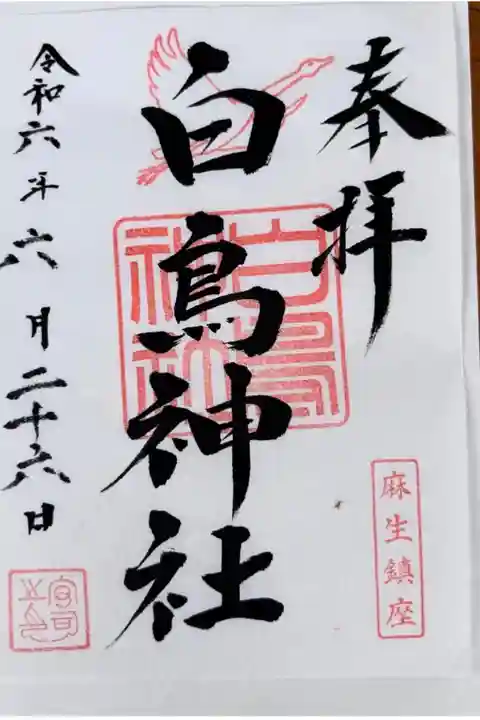 奉拝
麻生鎮座
白鳥神社
白鳥神社
令和六年六月二十六日
宮司之印